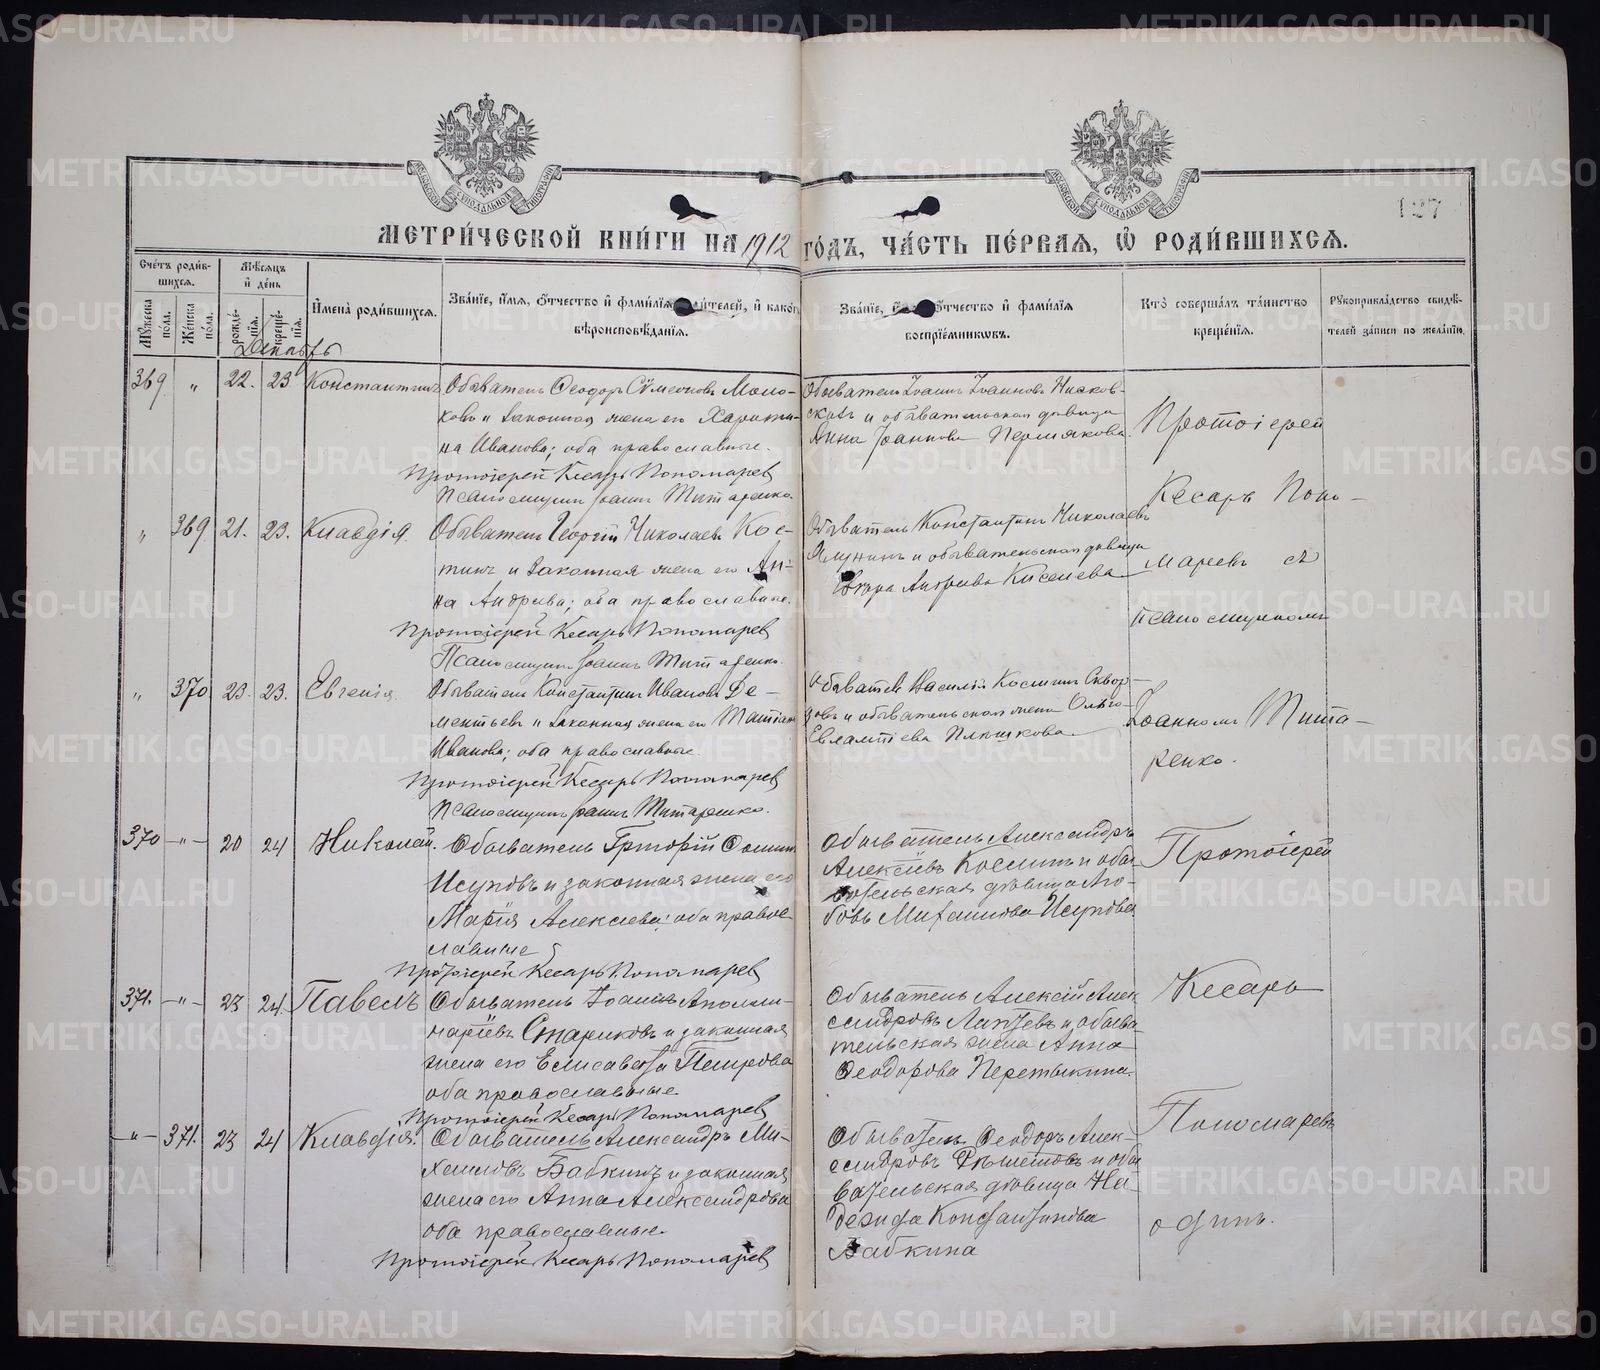 127
МЕТРИ́ЧЕСКОЙ КНИ́ГИ НА 1912 ГО́ДЪ, ЧА́СТЬ ПЕ́РВАЯ, Ѽ РОДИ́ВШИХСЯ.
Сче́тъ роди́в-
шихся.
Мѣ́сяцъ
и҆ де́нь
Мꙋ́жеска по́ла.
Же́нска по́ла.
рожде́-
нїя.
креще́-
нїя.
И҆мена̀ роди́вшихся.
Зва́нїе, и҆́мя, о҆́тчество и҆ фами́лїя роди́телей, и҆ како́гѡ
вѣроисповѣ́данїя.
Зва́нїе, и҆́мя, о҆́тчество и҆ фами́лїя
воспрїе́мникѡвъ.
Кто̀ соверша́лъ та́инство
креще́нїя.
Рꙋкоприкла́дство свидѣ́-
телей за́писи по жела́нїю.
Декабрь
369 " 22. 23 Константинъ
Обыватель Ѳеодоръ Сѵмеоновъ Моло-
ковъ и законная жена его Харити-
на Иванова; оба православные.
Протоіерей Кесарь Пономарев
Псаломщикъ Іоаннъ Титаренко.
Обыватель Іоаннъ Іоанновъ Нисков-
сковъ и обывательская дѣвица
Анна Іоаннова Пермякова.
Протоіерей
Кесарь Поно-
маревъ съ
псаломщикомъ
Іоанномъ Тита-
ренко.
" 369 21. 23. Клавдія.
Обыватель Георгій Николаевъ Кос-
тинъ и законная жена его Ан-
на Андреева; оба православные.
Протоіерей Кесарь Пономарев
Псаломщикъ Іоаннъ Титаренко.
Обыватель Константинъ Николаевъ
и обывательская дѣвица
Андреева Киселева
" 370 23. 23. Евгенія
Обыватель Константинъ Ивановъ Де-
ментьевъ и законная жена его Татіана
Иванова; оба православные.
Протоіерей Кесарь Пономарев
Псаломщикъ Іоаннъ Титаренко.
Обыватель Василій Косминъ Сквор-
цовъ и обывательская жена Ольга
Евлампіева Плѣшкова
370 -"- 20 24 Николай.
Обыватель Григорій Ѳоминъ
Исуповъ и законная жена его
Марія Алексіева; оба правос-
лавные
Протоіерей Кесарь Пономарев
Обыватель Александръ
Алексіевъ Косминъ и обы-
вательская дѣвица Лю-
бовь Михаилова Исупова
Протоіерей
Кесарь
Пономаревъ
одинъ.
371. -"- 23 24 Павелъ
Обыватель Іоаннъ Аполли-
наріевъ Стариковъ и законная
жена его Елисавета Петрова
оба православные
Протоіерей Кесарь Пономарев
Обыватель Алексій Алек-
сандровъ Лаптевъ и обыва-
тельская жена Анна
Ѳеодорова Перетыкина.
-"- 371. 23 24 Клавдія.
Обыватель Александръ Ми-
хаиловъ Бабкинъ и законная
жена его Анна Александрова
оба православные.
Протоіерей Кесарь Пономарев
Обыватель Ѳеодоръ Алек-
сандровъ Рѣшетовъ и обы-
вательская дѣвица На-
дежда Константинова
Бабкина
METRIKI.GASO-URAL.RU